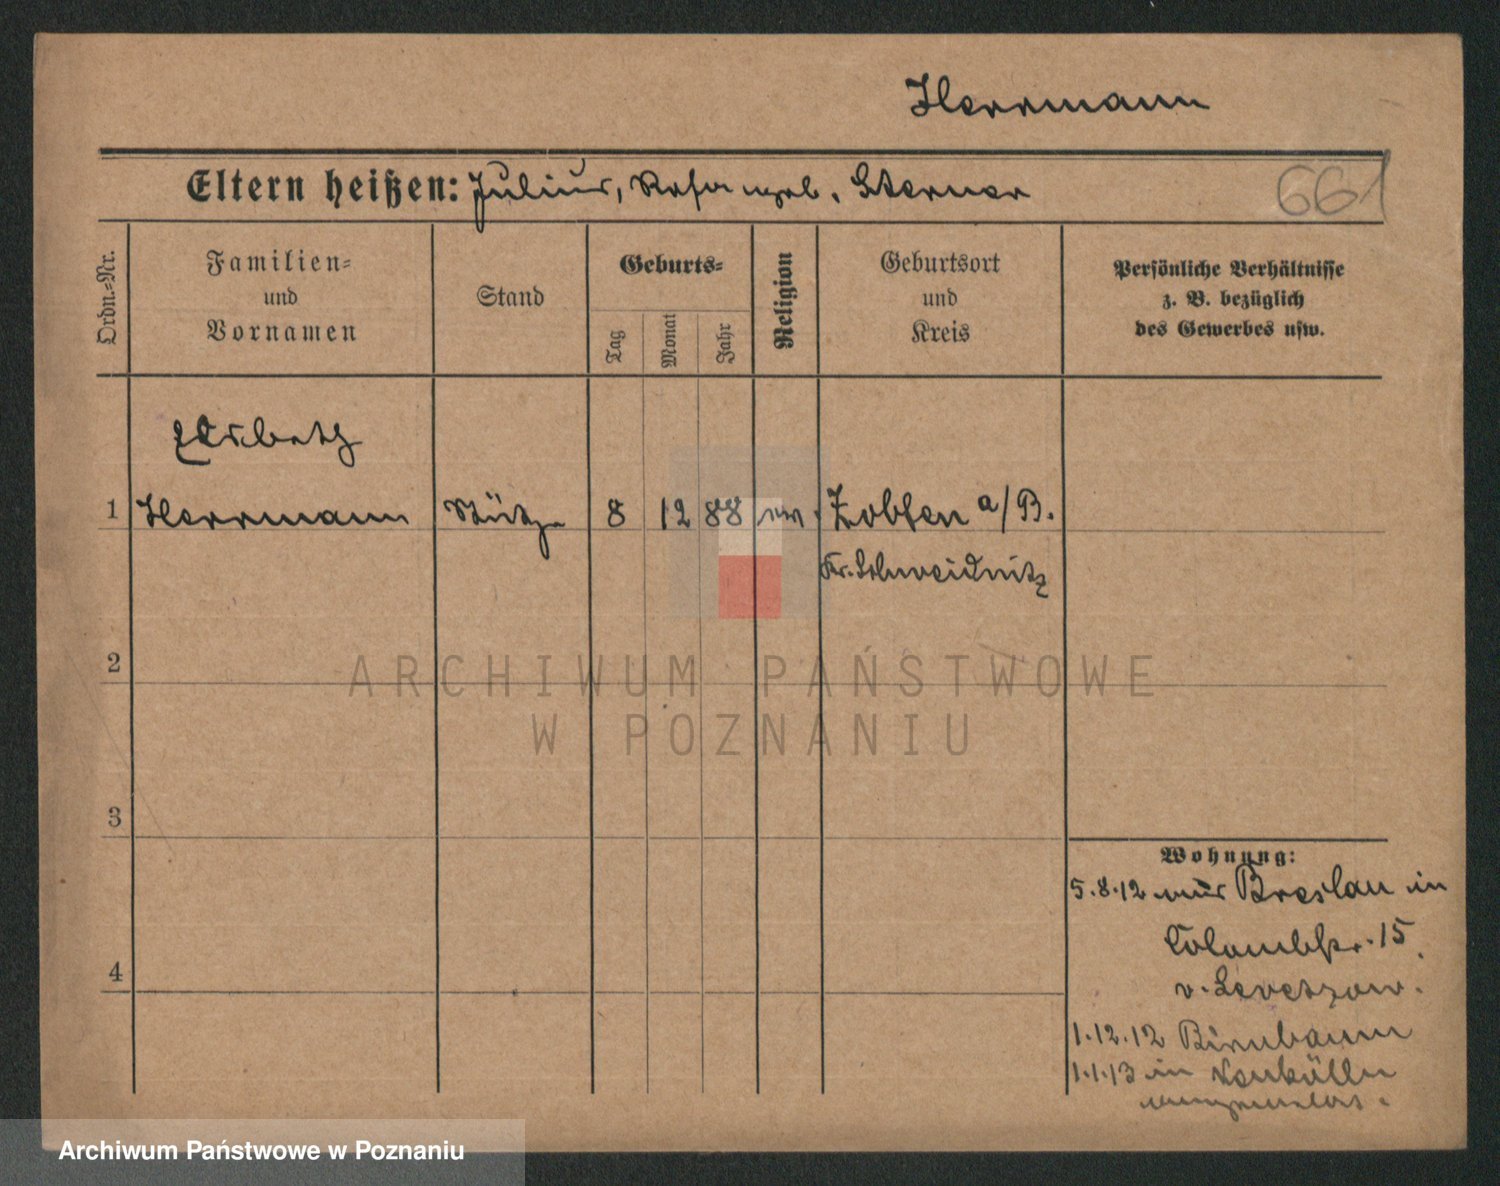 Herrmann
Eltern heißen: Julius, Rosa geb. Sterner
661
Ordn.-Nr.
Familien-
und
Vornamen
Stand
Geburts-
Tag
Monat
Jahr
Religion
Geburtsort
und
Kreis
Persönliche Verhältnisse
z. B. bezüglich
des Gewerbes usw.
Elisabeth
1 Herrmann Stütze 8 12 88 ev. Zobten a/B.
Kr. Schweidnitz
2
3
4
Wohnung:
5.8.12 aus Breslau in
15.
v. Levetzow.
1.12.12 Birnbaum
1.1.13 in Neukölln
angemeldet.
ARCHIWUM PAŃSTWOWE
W POZNANIU
Archiwum Państwowe w Poznaniu